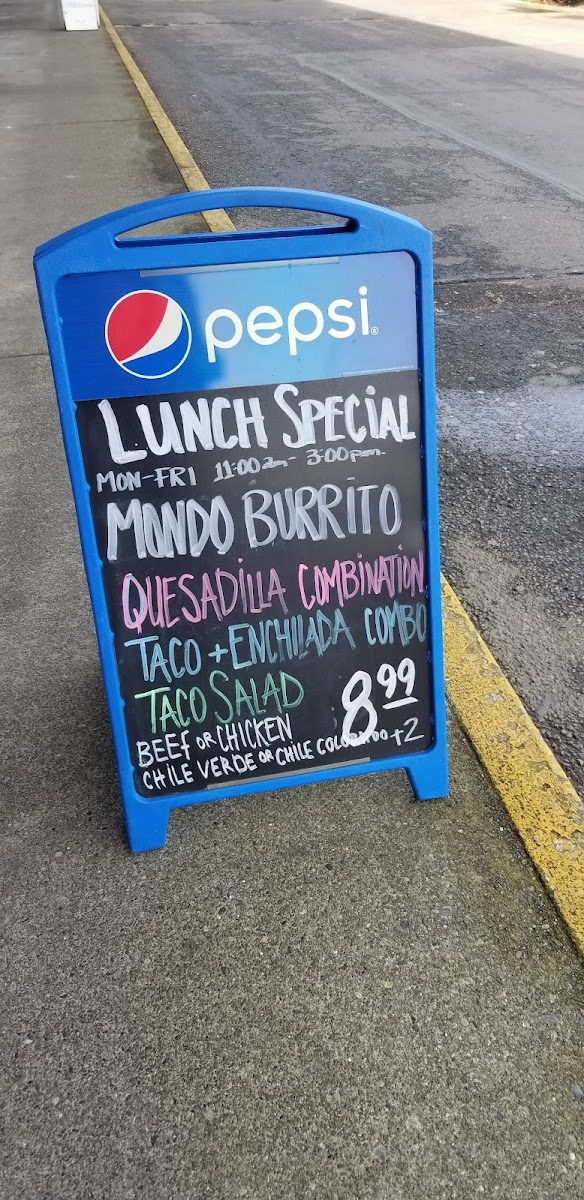 pepsi®
LUNCH SPECIAL
MON-FRI 11:00am - 3:00pm
MONDO BURRITO
QUESADILLA COMBINATION
TACO + ENCHILADA COMBO
TACO SALAD
8.99
BEEF OR CHICKEN
CHILE VERDE OR CHILE COLORADO +2